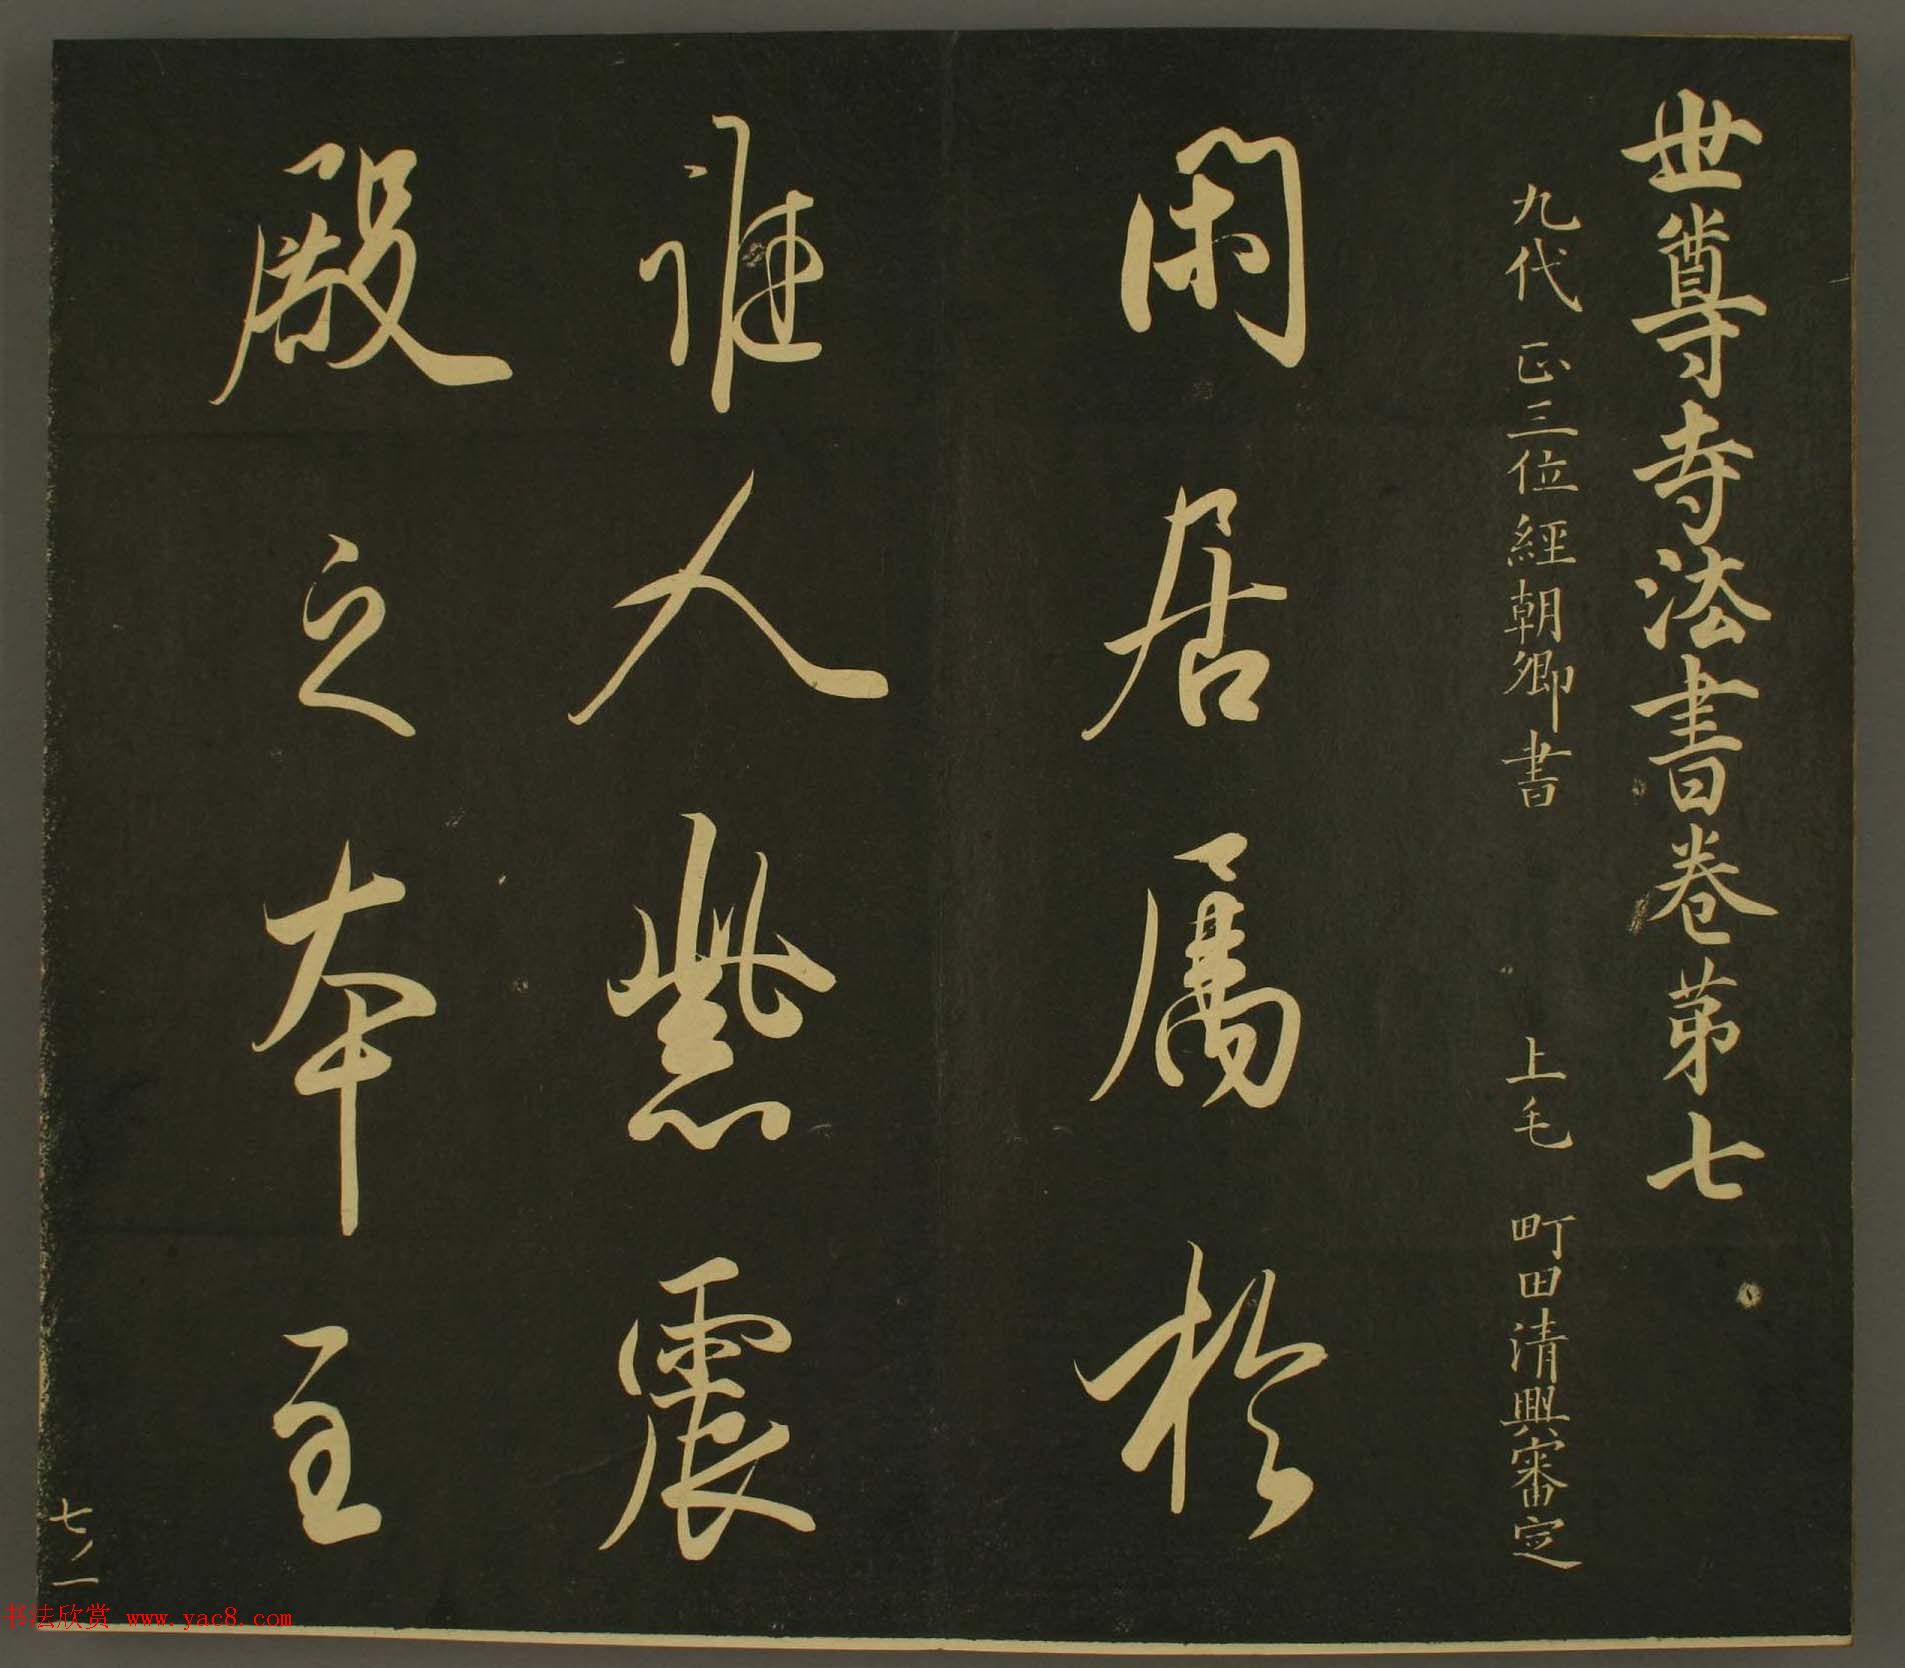 世尊寺法書卷第七
九代正三位經朝卿書 上毛 町田清興審定
閑居属於
誰人紫震
殿之本主
七ノ一
书法欣赏 www.yac8.com